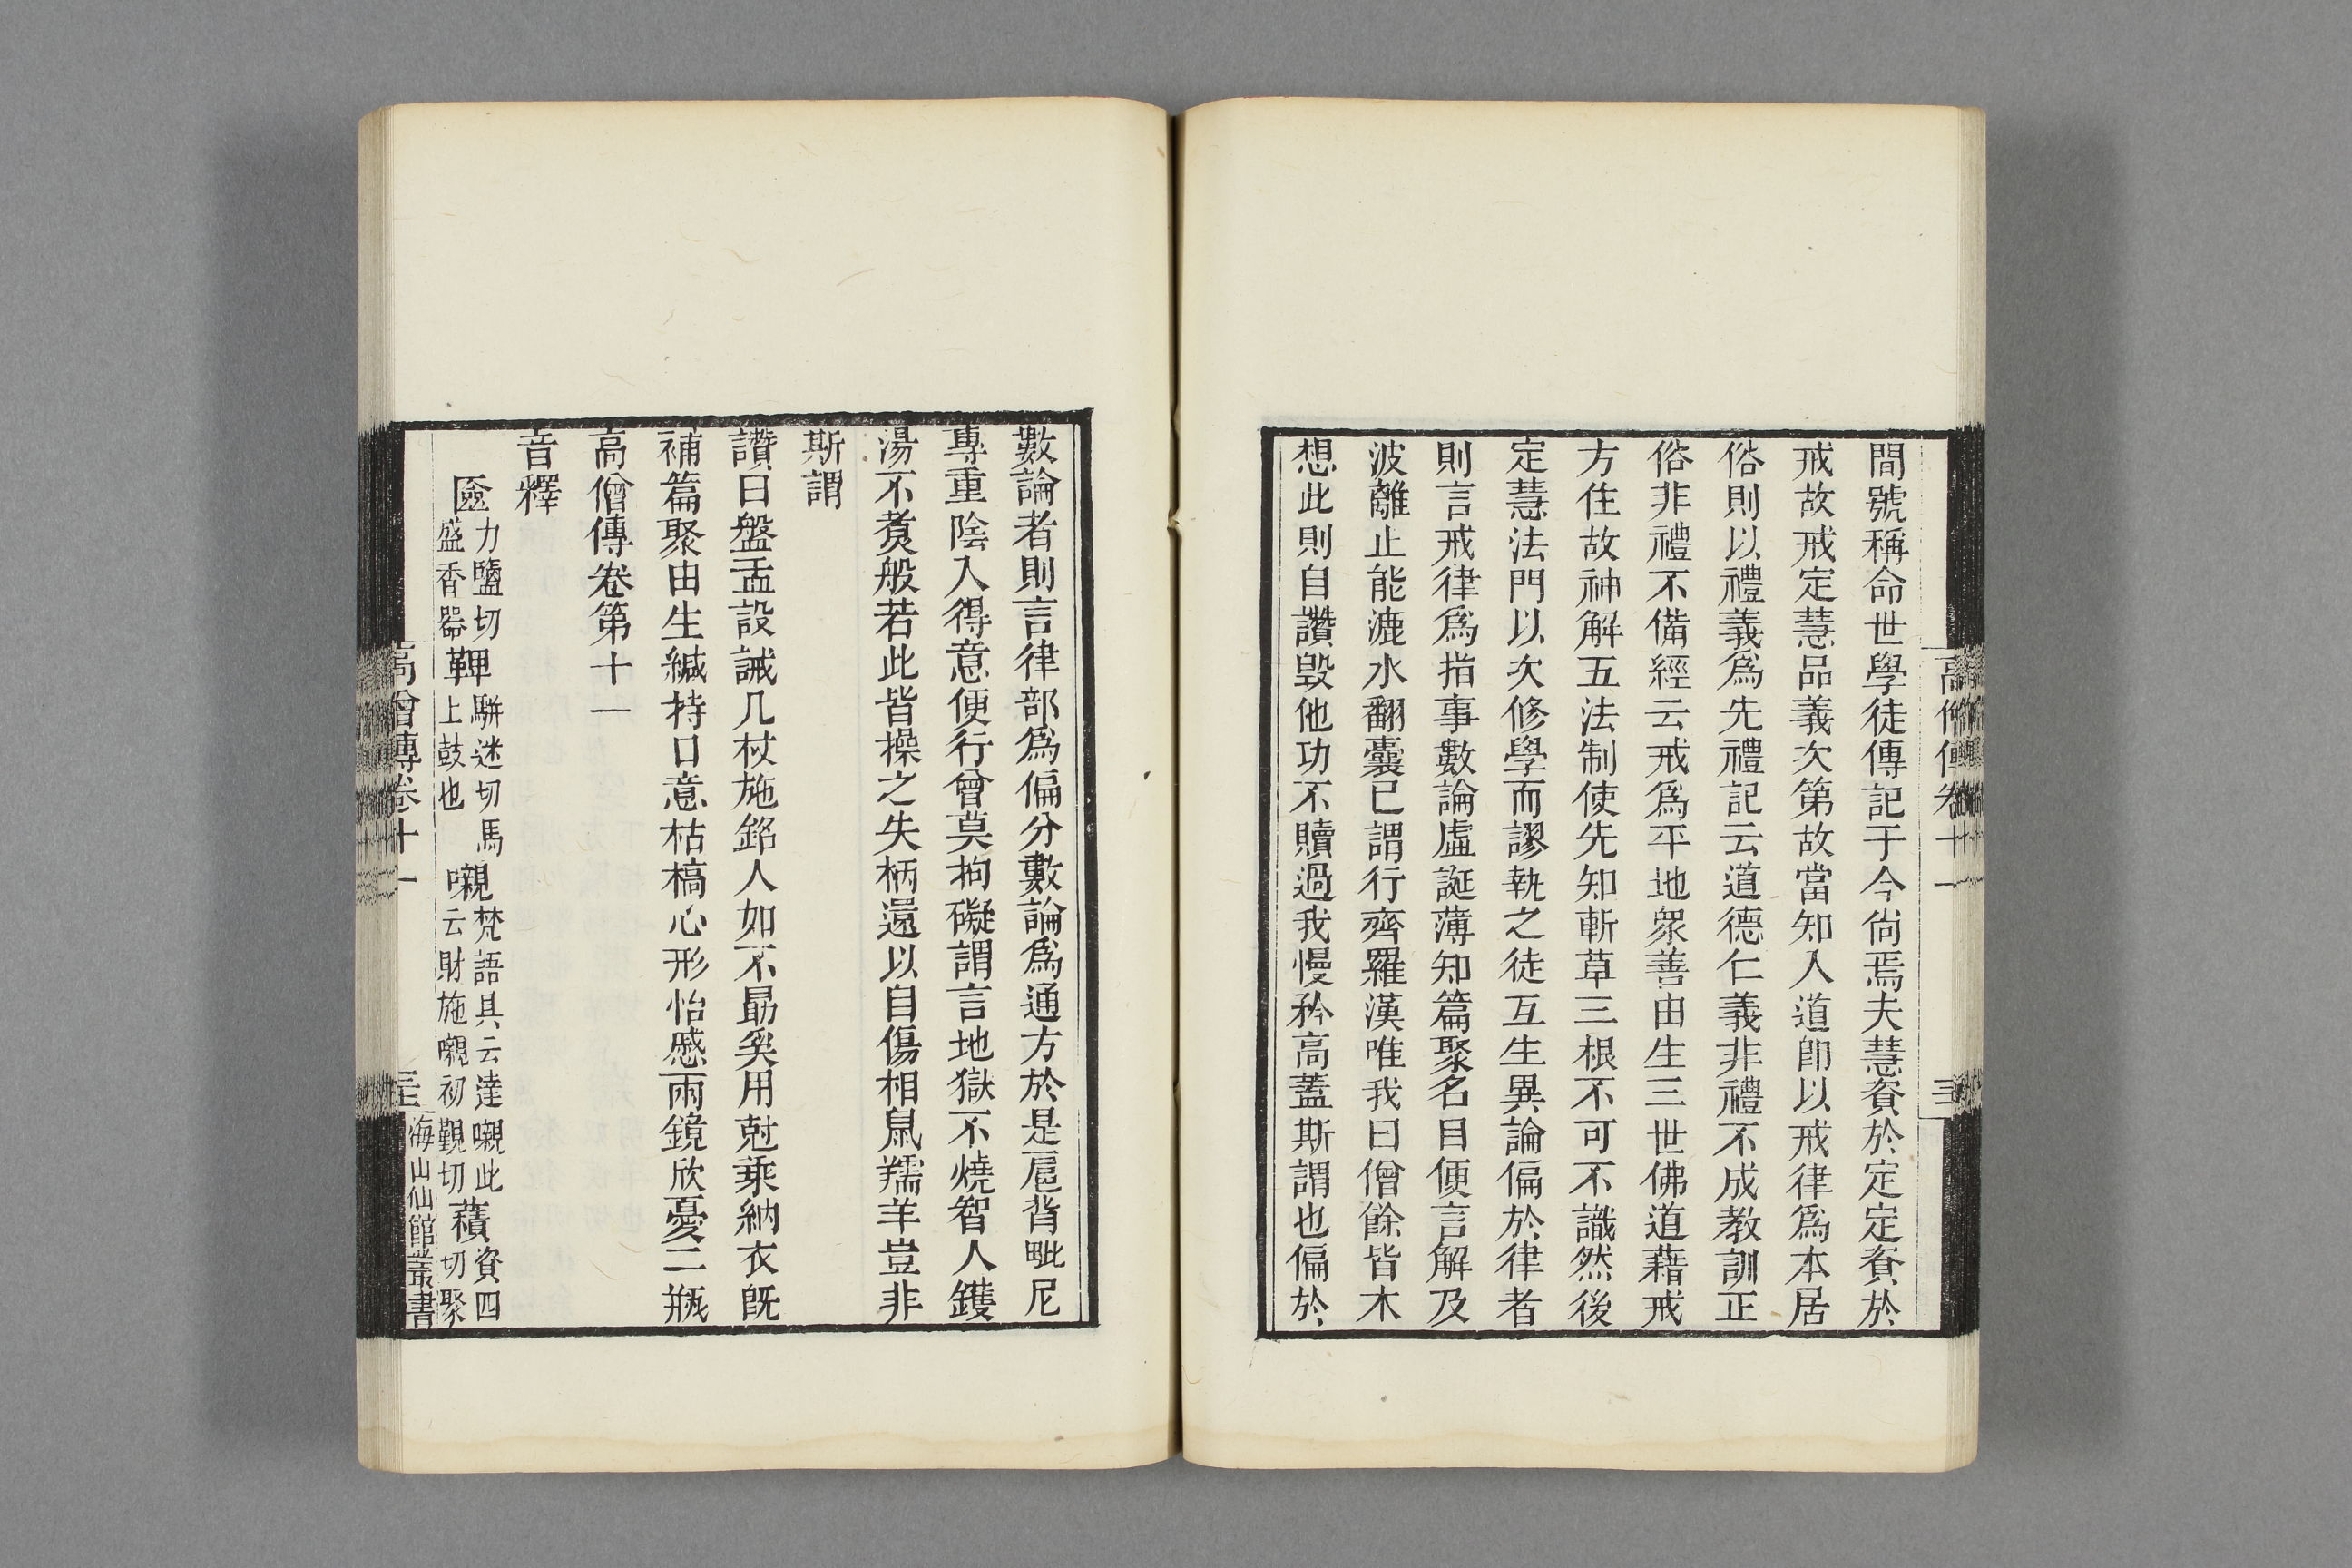 高僧傳卷十一
三十二
間號稱命世學徒傳記于今尙焉夫慧資於定定資於
戒故戒定慧品義次第故當知入道卽以戒律爲本居
俗則以禮義爲先禮記云道德仁義非禮不成教訓正
俗非禮不備經云戒爲平地衆善由生三世佛道藉戒
方住故神解五法制使先知斬草三根不可不識然後
定慧法門以次修學而謬執之徒互生異論偏於律者
則言戒律爲指事數論虛誕薄知篇聚名目便言解及
波離止能漉水翻囊已謂行齊羅漢唯我曰僧餘皆木
想此則自讚毀他功不贖過我慢矜高蓋斯謂也偏於
數論者則言律部爲偏分數論爲通方於是扈背毗尼
專重陰入得意便行曾莫拘礙謂言地獄不燒智人鑊
湯不煑般若此皆操之失柄還以自傷相鼠羺羊豈非
斯謂
讚曰盤盂設誡几杖施銘人如不勗奚用尅乘納衣旣
補篇聚由生緘持口意枯槁心形怡慼兩鏡欣憂二瓶
高僧傳卷第十一
音釋
匳力鹽切盛香器鞞騈迷切馬上鼓也嚫梵語具云達嚫此云財施嚫初覲切䕆資四切聚
高僧傳卷十一
海山仙館叢書